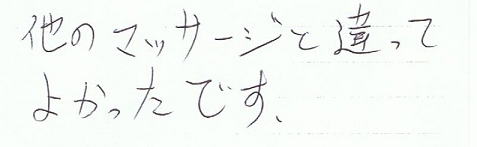 他のマッサージと違って
よかったです、